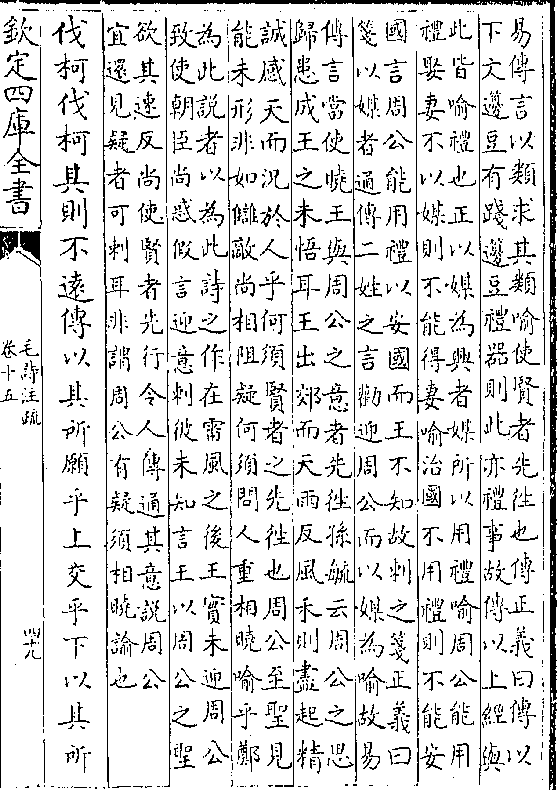 易傳言以類求其類喻使賢者先徃也傳正義曰傳以
下文籩豆有踐籩豆禮器則此亦禮事故傳以上經與
此皆喻禮也正以媒為興者媒所以用禮喻周公能用
禮娶妻不以媒則不能得妻喻治國不用禮則不能安
國言周公能用禮以安國而王不知故刺之箋正義曰
箋以媒者通傳二姓之言勸迎周公而以媒為喻故易
傳言當使曉王與周公之意者先徃孫毓云周公之思
歸患成王之未悟耳王出郊而天雨反風禾則盡起精
誠感天而況於人乎何須賢者之先徃也周公至聖見
能未形非如讎敵尚相阻疑何須問人重相曉喻乎鄭
為此說者以為此詩之作在雷風之後王實未迎周公
致使朝臣尚惑假言迎意刺彼未知言王以周公之聖
欲其速反尚使賢者先行令人傳通其意說周公
宜還見疑者可刺耳非謂周公有疑須相曉諭也
伐柯伐柯其則不遠傳以其所願乎上交乎下以其所
欽定四庫全書
毛詩注疏
卷十五
四十九